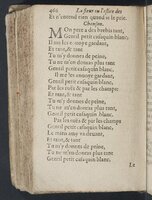 466 La fleur ou l'eslite des
Et n'entend rien quand ie le prie.
Chanson.
MOn pere a des brebis tant,
Gentil petit cassaquin blanc,
Il me les enuoye gardant,
Et tant, & tant
Tu m'y donnes de peine,
Tu ne m'en donras plus tant
Gentil petit cassaquin blanc.
Il me les enuoye gardant,
Gentil petit cassaquin blanc,
Par les et par les champs:
Et tant, & tant
Tu m'y donnes de peine,
Tu ne m'en donras plus tant,
Gentil petit cassaquin blanc.
Par les et par les champs,
Gentil petit cassaquin blanc,
Le mien amy va deuant,
Et tant, & tant
Tu m'y donnes de peine,
Tu ne m'en donras plus tant
Gentil petit cassaquin blanc.
Le